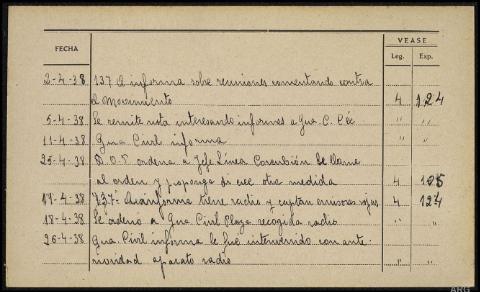 VEASE
FECHA Leg. Exp.
2-4-38 137 A informa sobre reuniones comentando contra
el movimiento 4 124
5-4-38 Se remite nota interesando informes a Gua. C. Cée " "
11-4-38 Gua Civil informa " "
25-4-38 D.O.P. ordena a Jefe Linea Corcubión le llame
al orden y proponga si cree otra medida 4 125
17-4-38 137-A informa tiene radio y captan emisoras rojas 4 124
18-4-38 Se ordenó a Gua Civil Plaza recogida radio " "
26-4-38 Gua Civil informa le fue intervenido con ante-
rioridad aparato radio " "
ARG